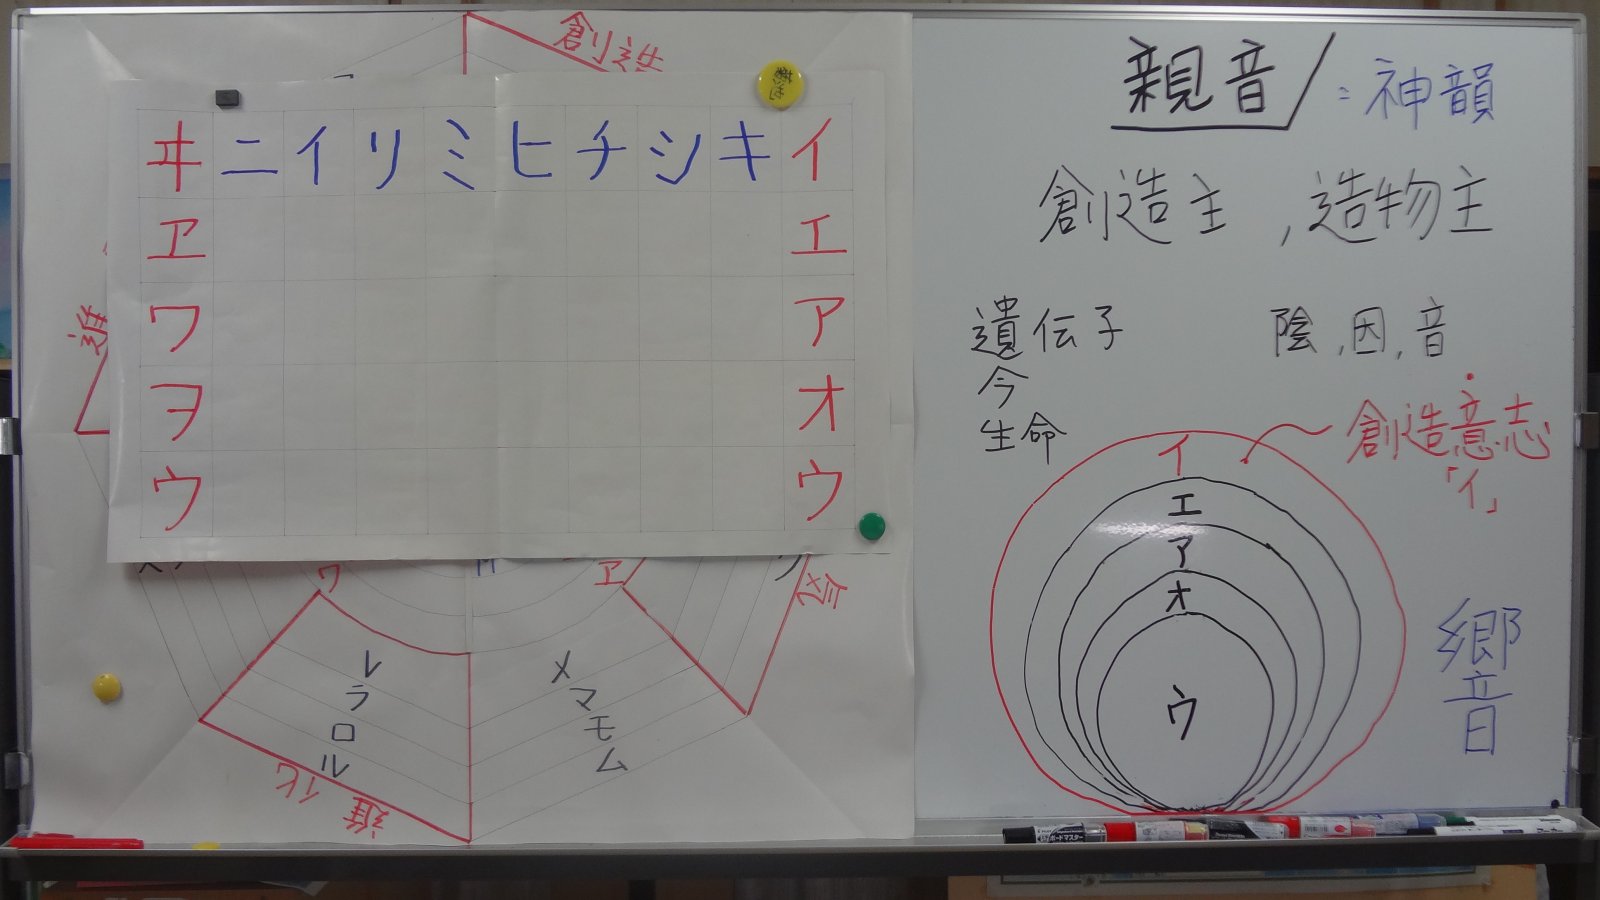 創造
ヰニイリミヒチシキイ
ヱ エ
ワ ア
ヲ オ
ウ ウ
進
ワ
ヱ
レ
ラ
ロ
ル
進化
メ
マ
モ
ム
親音
=神韻
創造主,造物主
遺伝子
今
生命
陰,因,音
創造意志
「イ」
イ
エ
ア
オ
ウ
響
ボードマスター